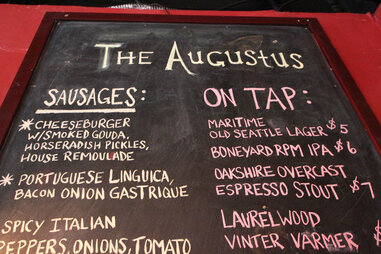 The Augustus
Sausages:
* Cheeseburger
w/smoked gouda,
horseradish pickles,
house remoulade
* Portuguese Linguica,
Bacon Onion Gastrique
Spicy Italian
Peppers, Onions, Tomato
On Tap:
Maritime
Old Seattle Lager $5
Boneyard RPM IPA $6
Oakshire Overcast
Espresso Stout $7
Laurelwood
Vinter Varmer $